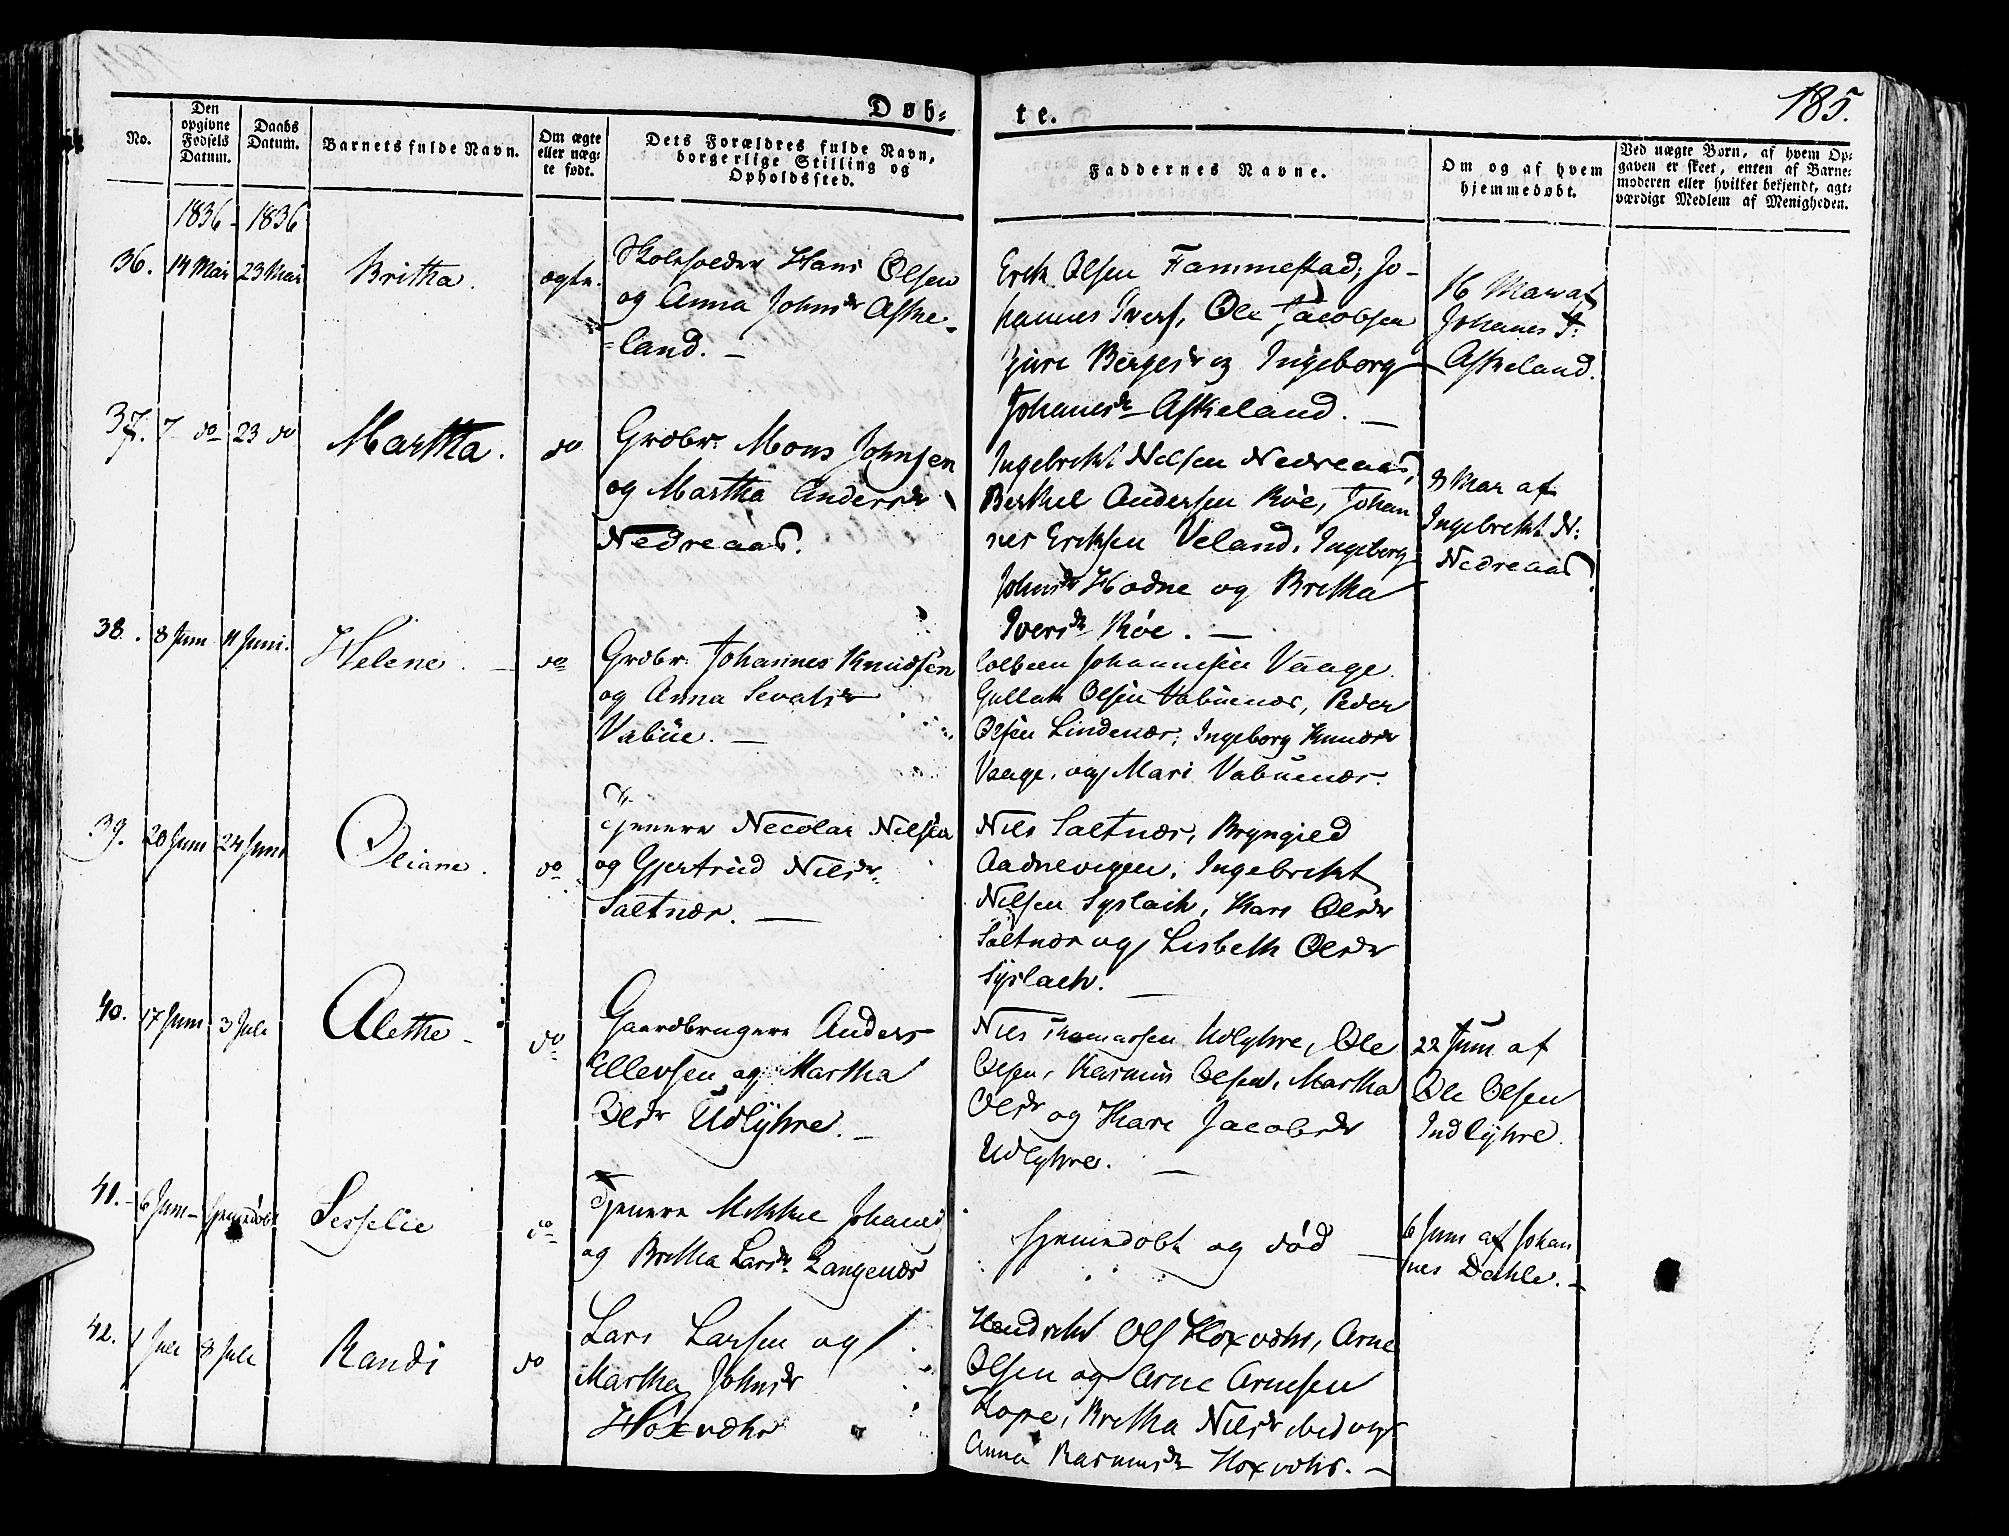 185.
Døb-
te.
No.
Den
opgivne
Fødsels
Datum.
Daabs
Datum.
Barnets fulde Navn.
Om ægte
eller uæg-
te født.
Dets Forældres fulde Navn,
borgerlige Stilling og
Opholdssted.
Faddernes Navne.
Om og af hvem
hjemmedøbt.
Ved uægte Børn, af hvem Op-
gaven er skeet, enten af Barne-
moderen eller hvilket bekjendt, agt-
værdigt Medlem af Menigheden.
1836 - 1836
36. 14 Mai 23 Mai Britha. ægte.
Skoleholder Hans Olsen
og Anna Johnsdr Aske-
land. -
Erik Olsen Fammestad, Jo-
hannes Ivers, Ole Jacobsen
Berges og Ingeborg
Johanesdr Askeland. -
16 Mai af
Johanes
Askeland.
37. 7 do 23 do Martha. do
Grdbr. Mons Johnsen
og Martha Andersdr
Nedreaas.
Ingebrikt Nelsen Nedreaas,
Berthel Andersen Røe, Johan
nes Eriksen Veland, Ingeborg
Johnsdr Hodne og Britha
Iversdr Røe. -
8 Mai af
Ingebrikt N:
Nedreaas
38. 8 Juni 11 Juni. Helene. do
Grdbr. Johannes Knudsen
og Anna Sevatsdr
Vabüe. -
Colbeen Johannesen Vaage.
Gullak Olsen Vabuenær, Peder
Olsen Lindenær, Ingeborg Knudsdr
Vaage, og Mari Vabuenær.
39. 20 Juni 24 Juni Oliane. do
Tjenere Necolai Nilsen
og Gjertrud Nilsdr
Saltnær. -
Nils Saltnær, Bryngied
Aadnevigen, Ingebrikt
Nilsen Syslach, Kari Olsdr
Saltnær og Lisbeth Olsdr
Syslach. -
40. 17 Juni 3 Juli Alethe - do
Gaardbrugere Anders
Ellevsen og Martha
Olsdr Udlÿhre. -
Nils Thomassen Udlyhre, Ole
Olsen, Rasmus Olsen, Martha
Olsdr og Kari Jacobsdr
Udlyhre. -
22 Juni af
Ole Olsen
Indlÿhre.
41. - 6 Juni - Hjemedøbt Sesselie do
Tjenere Mikkel Johanes
og Britha Larsdr Langenær
Hjemedøbt og død -
6 Juni af Johan
nes Dahle. -
42. 1 Juli 8 Juli Randi do
Lars Larsen og
Martha Johnsdr
Hoxvedhr
Hendrekt Ols Hoxvedhr, Arne
Olsen og Arne Arnesen
Hope, Britha Nilsdr ibed og
Anna Rasmusdr Hoxvedhr. -